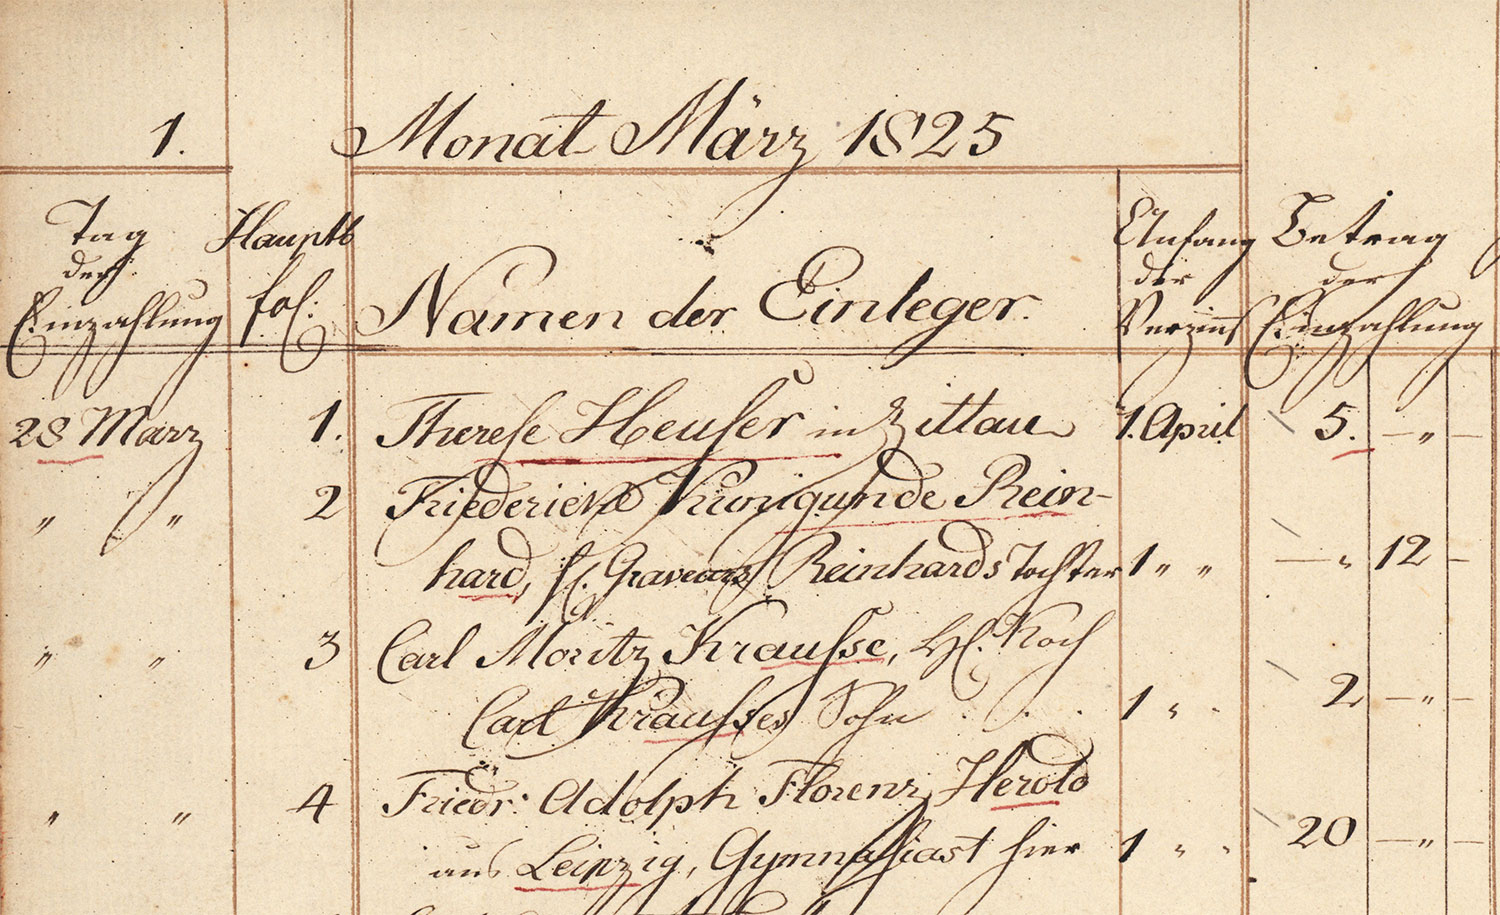 1. Monat März 1825
Tag der Einzahlung
Hauptb fol:
Namen der Einleger.
Anfang der Verzins
Betrag der Einzahlung
28 März 1. Therese Heuser in Zittau 1. April 5. — „ —
„ „ 2 Friederieke Kunigunde Rein-
hard, Graveurs Reinhards Tochter 1 „ „ — „ 12 —
„ „ 3 Carl Moritz Krausse, H. Koch
Carl Krausses Sohn . . . 1 „ „ 2 — „ —
„ „ 4 Friedr: Adolph Florenz Herold
aus Leipzig, Gymnasiast hier 1 „ „ 20 — „ —